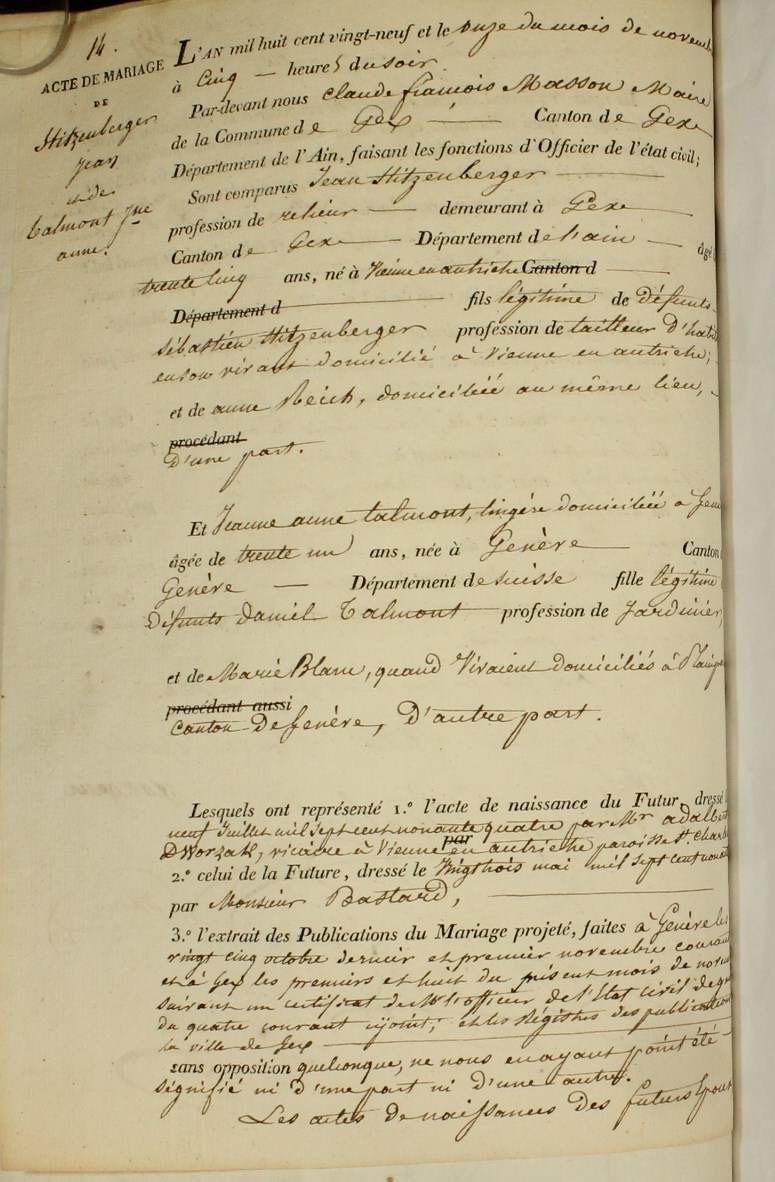 14.
ACTE DE MARIAGE
DE
Stitzenberger
Jean
et de
talmont Jne
anne.
L'AN mil huit cent vingt-neuf et le onze du mois de novemb
à Cinq — heures du soir
Par-devant nous Claude françois Masson Maire
de la Commune de Gex — Canton de Gex
Département de l'Ain, faisant les fonctions d'Officier de l'état civil;
Sont comparus Jean Stitzenberger —
profession de relieur — demeurant à Gex
Canton de Gex — Département de l'ain — âgé
trente cinq ans, né à Vienne en autriche Canton d —
Département d — fils légitime de défunts
sébastien Stitzenberger profession de tailleur d'habit
en son vivant domicilié à Vienne en autriche;
et de anne Reich, domiciliée au même lieu,
procédant
D'une part.
Et Jeanne anne talmont, lingère domiciliée à Gen
âgée de trente un ans, née à Genève — Canton
Genève — Département de suisse fille légitime
Défunts daniel Talmont profession de Jardinier,
et de Marie Blanc, quand Vivaient domiciliés à Plainp
procédant aussi
Canton de Genève, D'autre part.
Lesquels ont représenté 1.º l'acte de naissance du Futur, dressé
neuf Juillet mil sept cent nonante quatre par Mr adalbert
par
DWorzak, vicaire à Vienne en autriche paroisse St. Charles
2.º celui de la Future, dressé le Vingt trois mai mil sept cent nonant
par Monsieur Bastard, —
3.º l'extrait des Publications du Mariage projeté, faites à Genève les
vingt cinq octobre dernier et premier novembre courant
et à Gex les premiers et huit du présent mois de novem
suivant un certificat de Mr l'officier de l'Etat civil de
du quatre courant cijoint; et les Régistres des publications
la ville de Gex —
sans opposition quelconque, ne nous en ayant point été
signifié ni d'une part ni d'une autre.
Les actes de naissances des futurs Epoux